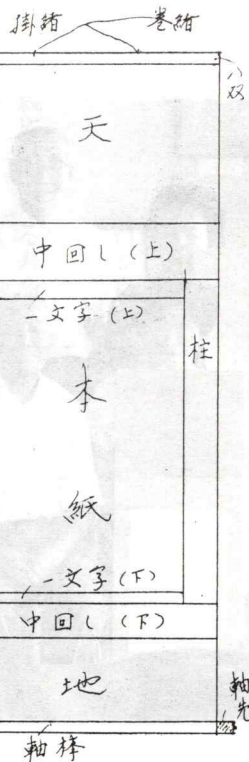 掛緒 巻緒
八双
天
中回し（上）
一文字（上）
柱
本紙
一文字（下）
中回し（下）
地
軸先
軸棒